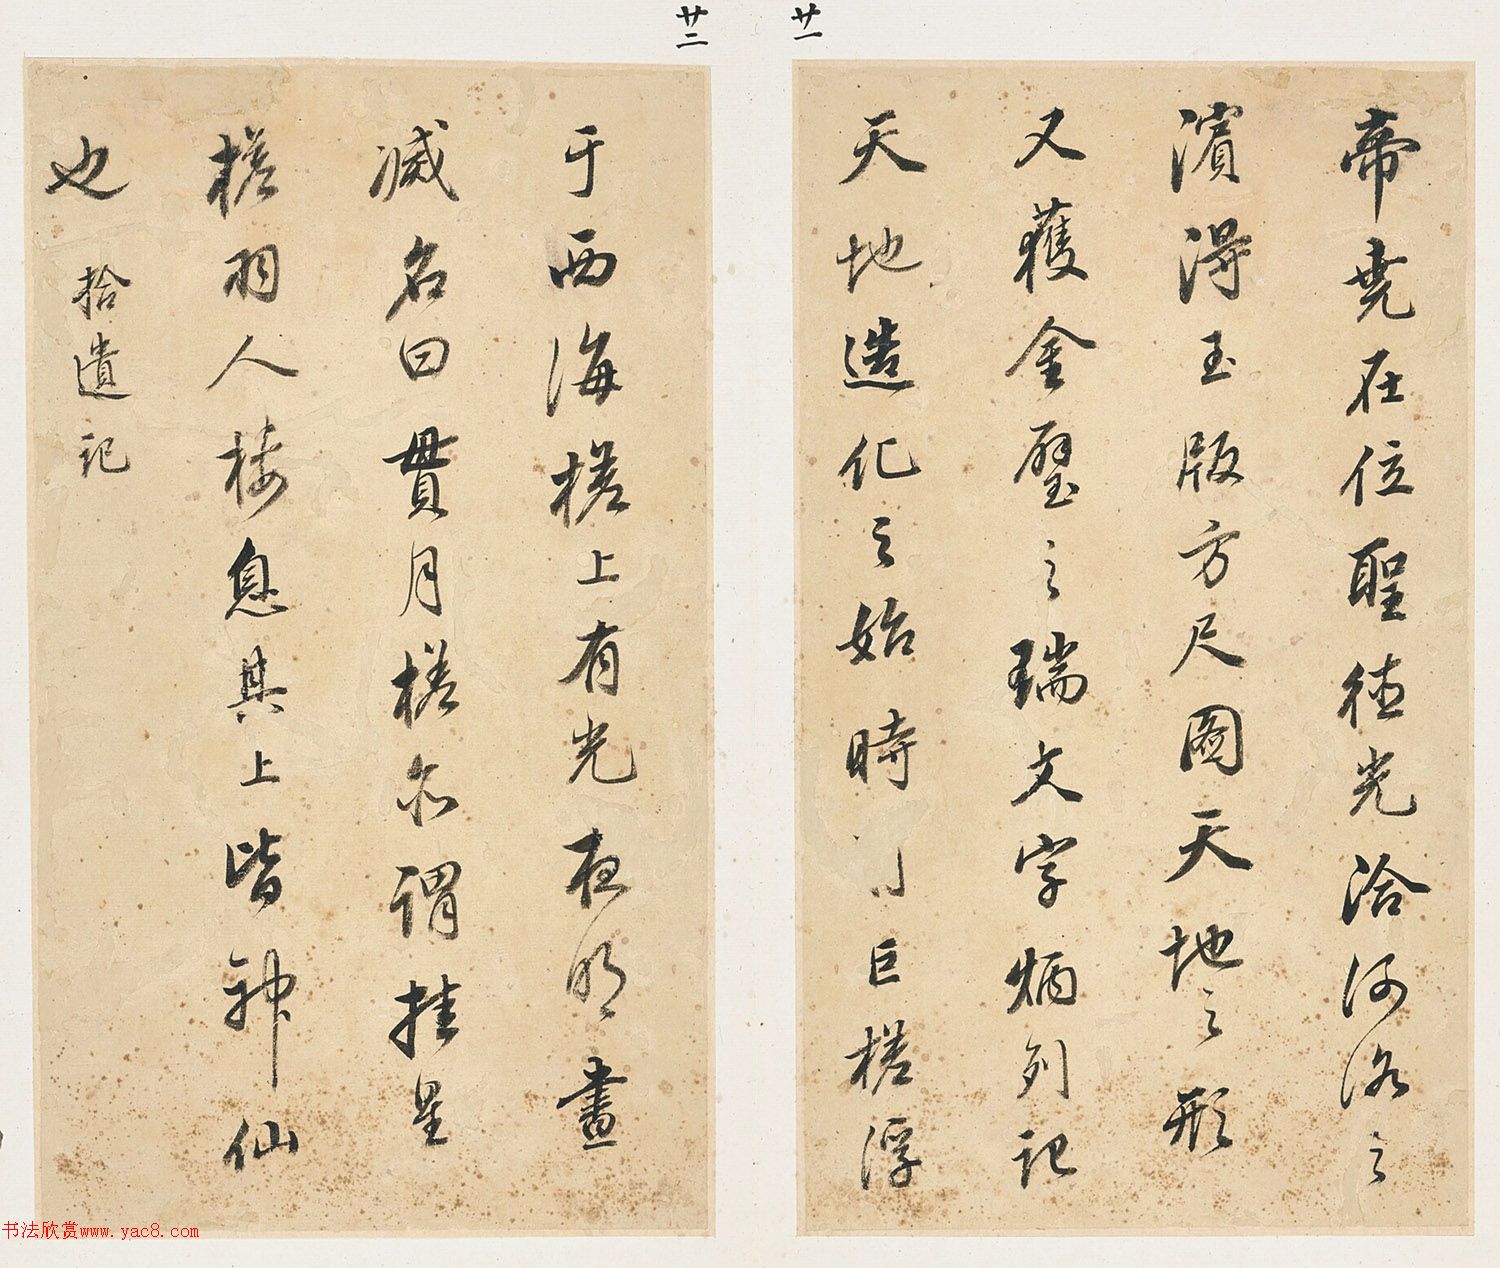 廿一
帝堯在位聖德光洽河洛之
濱得玉版方尺圖天地之形
又獲金璧之瑞文字炳列記
天地造化之始時 巨槎浮
廿二
于西海槎上有光夜明晝
滅名曰貫月槎亦謂挂星
槎羽人棲息其上皆神仙
也 拾遺記
书法欣赏www.yac8.com